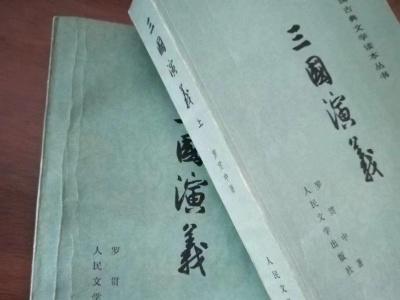 古典文学读本丛书
三國演義
罗贯中著
人民文学出版社
三國演義 上
罗贯中著
人民文
國演義
罗贯
人民文学